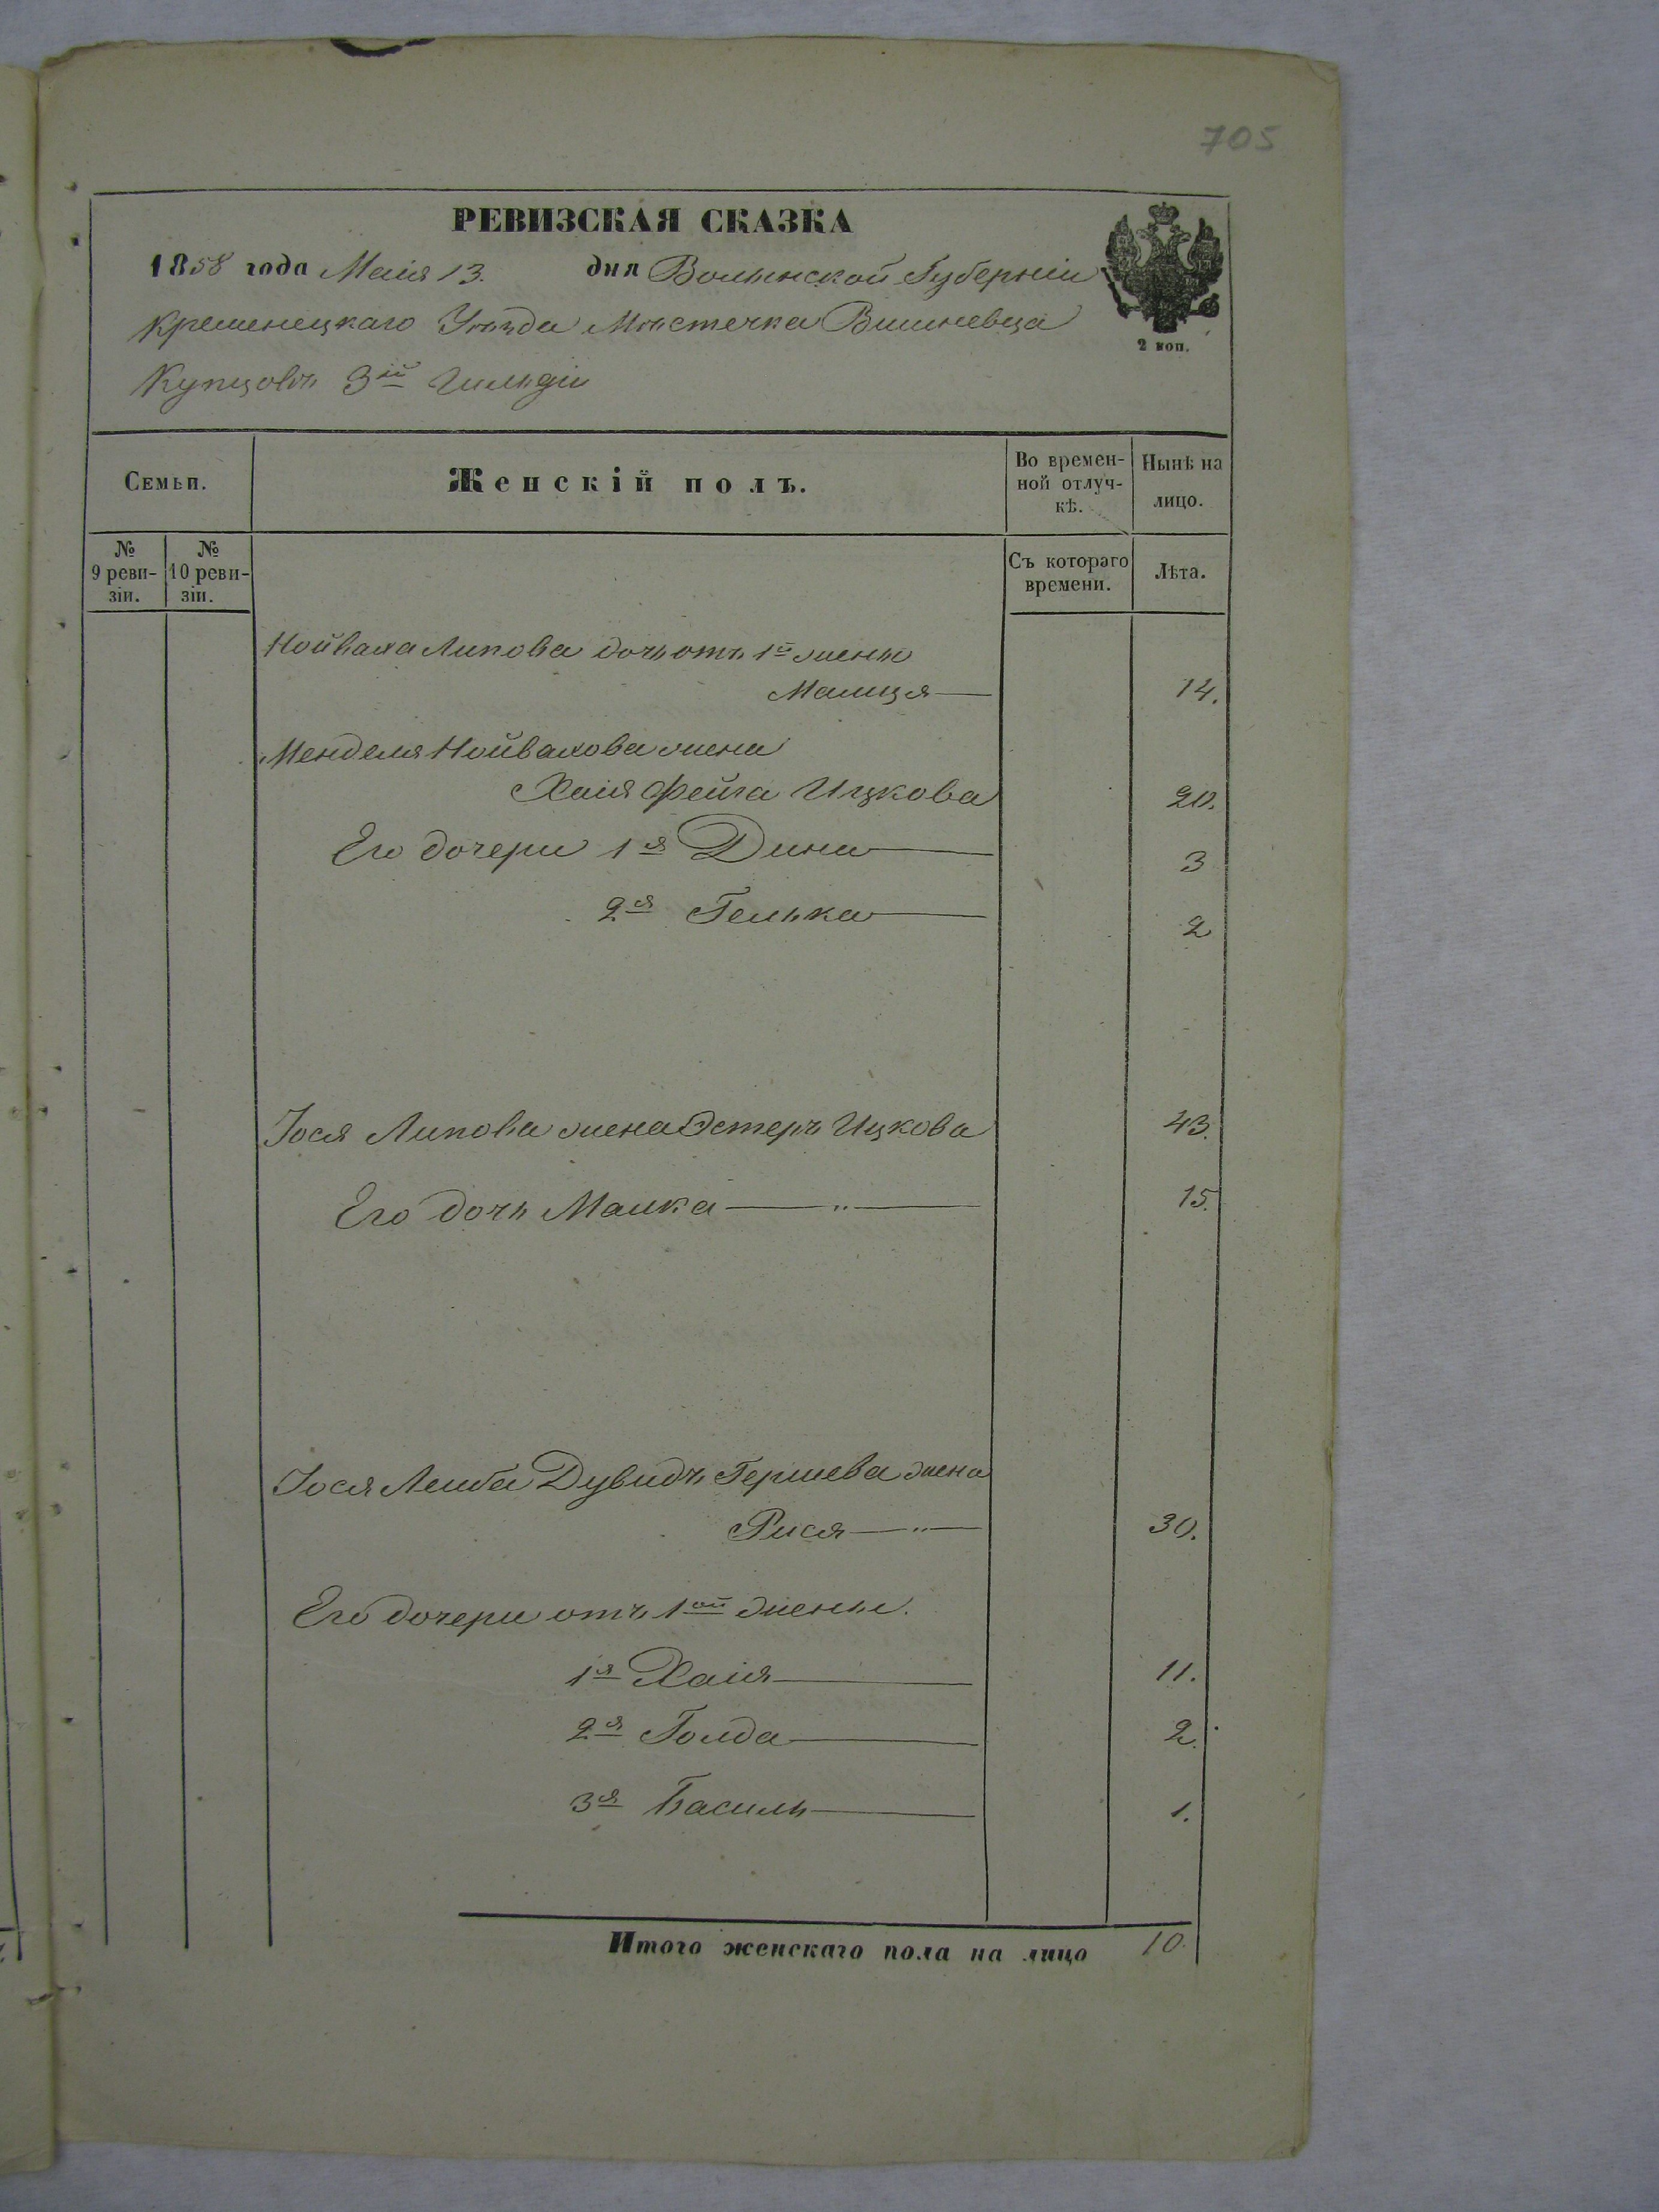 705
РЕВИЗСКАЯ СКАЗКА
1858 года Маія 13. дня Волынской Губерніи
Кременецкаго Уѣзда Мѣстечка Вишневца
2 коп.
Купцовъ 3ій Гильдіи
Семьи. Женскій полъ. Во временной отлучкѣ. Нынѣ на лицо.
№ 9 ревизіи. № 10 ревизіи. Съ котораго времени. Лѣта.
Нойваха Липова дочь отъ 1й жены
Малця 14.
Менделя Нойвахова жена
Хаія Фейга Ицкова 20.
Его дочери 1я Дина 3
2я Гелька 2
Іося Липова жена Эстеръ Ицкова 43.
Его дочь Малка 15.
Іося Лейба Дувидъ Гершева жена
Рися 30.
Его дочери отъ 1ой жены.
1я Хаія 11.
2я Голда 2.
3я Басиль 1.
Итого женскаго пола на лицо 10.